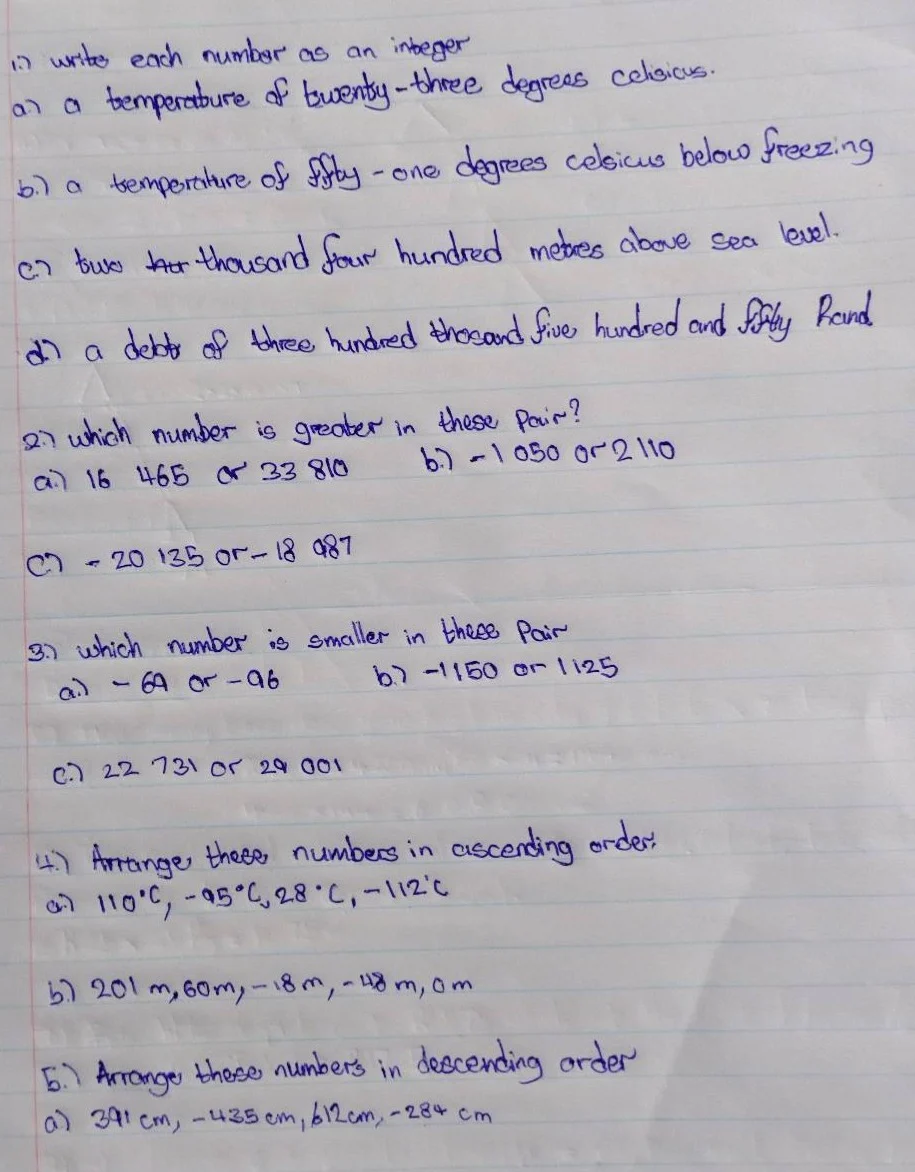 1.) write each number as an integer
a.) a temperature of twenty-three degrees celisicus.
b.) a temperature of fifty-one degrees celsicus below freezing
c.) two thousand four hundred metres above sea level.
d.) a debt of three hundred thosand five hundred and fifty Rand
2.) which number is greater in these Pair?
a.) 16 465 or 33 810 b.) -1 050 or 2 110
c.) -20 135 or -18 987
3.) which number is smaller in these Pair
a.) -69 or -96 b.) -1150 or 1125
c.) 22 731 or 29 001
4.) Arrange these numbers in ascending order.
a.) 110°C, -95°C, 28°C, -112°C
b.) 201 m, 60m, -18m, -48m, 0m
5.) Arrange these numbers in descending order
a) 391 cm, -435 cm, 612cm, -284 cm